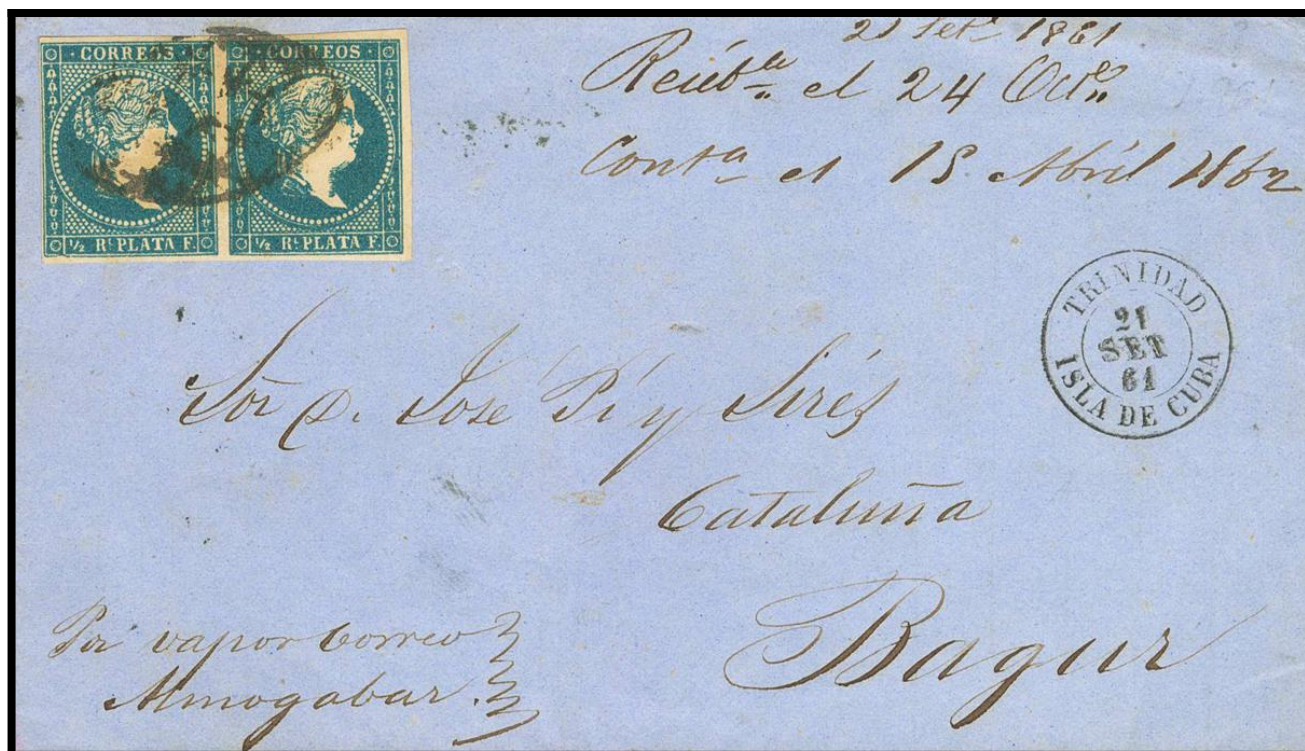 CORREOS
½ Rˡ PLATA F.
CORREOS
½ Rˡ PLATA F.
21 Setᵉ 1861
Recibᵈᵃ el 24 Octᵉ
Contᵃ el 15 Abril 1862
TRINIDAD
21
SET
61
ISLA DE CUBA
Sor D. José Pí y Sirés
Cataluña
Bagur
Por vapor Correo
Almogabar.